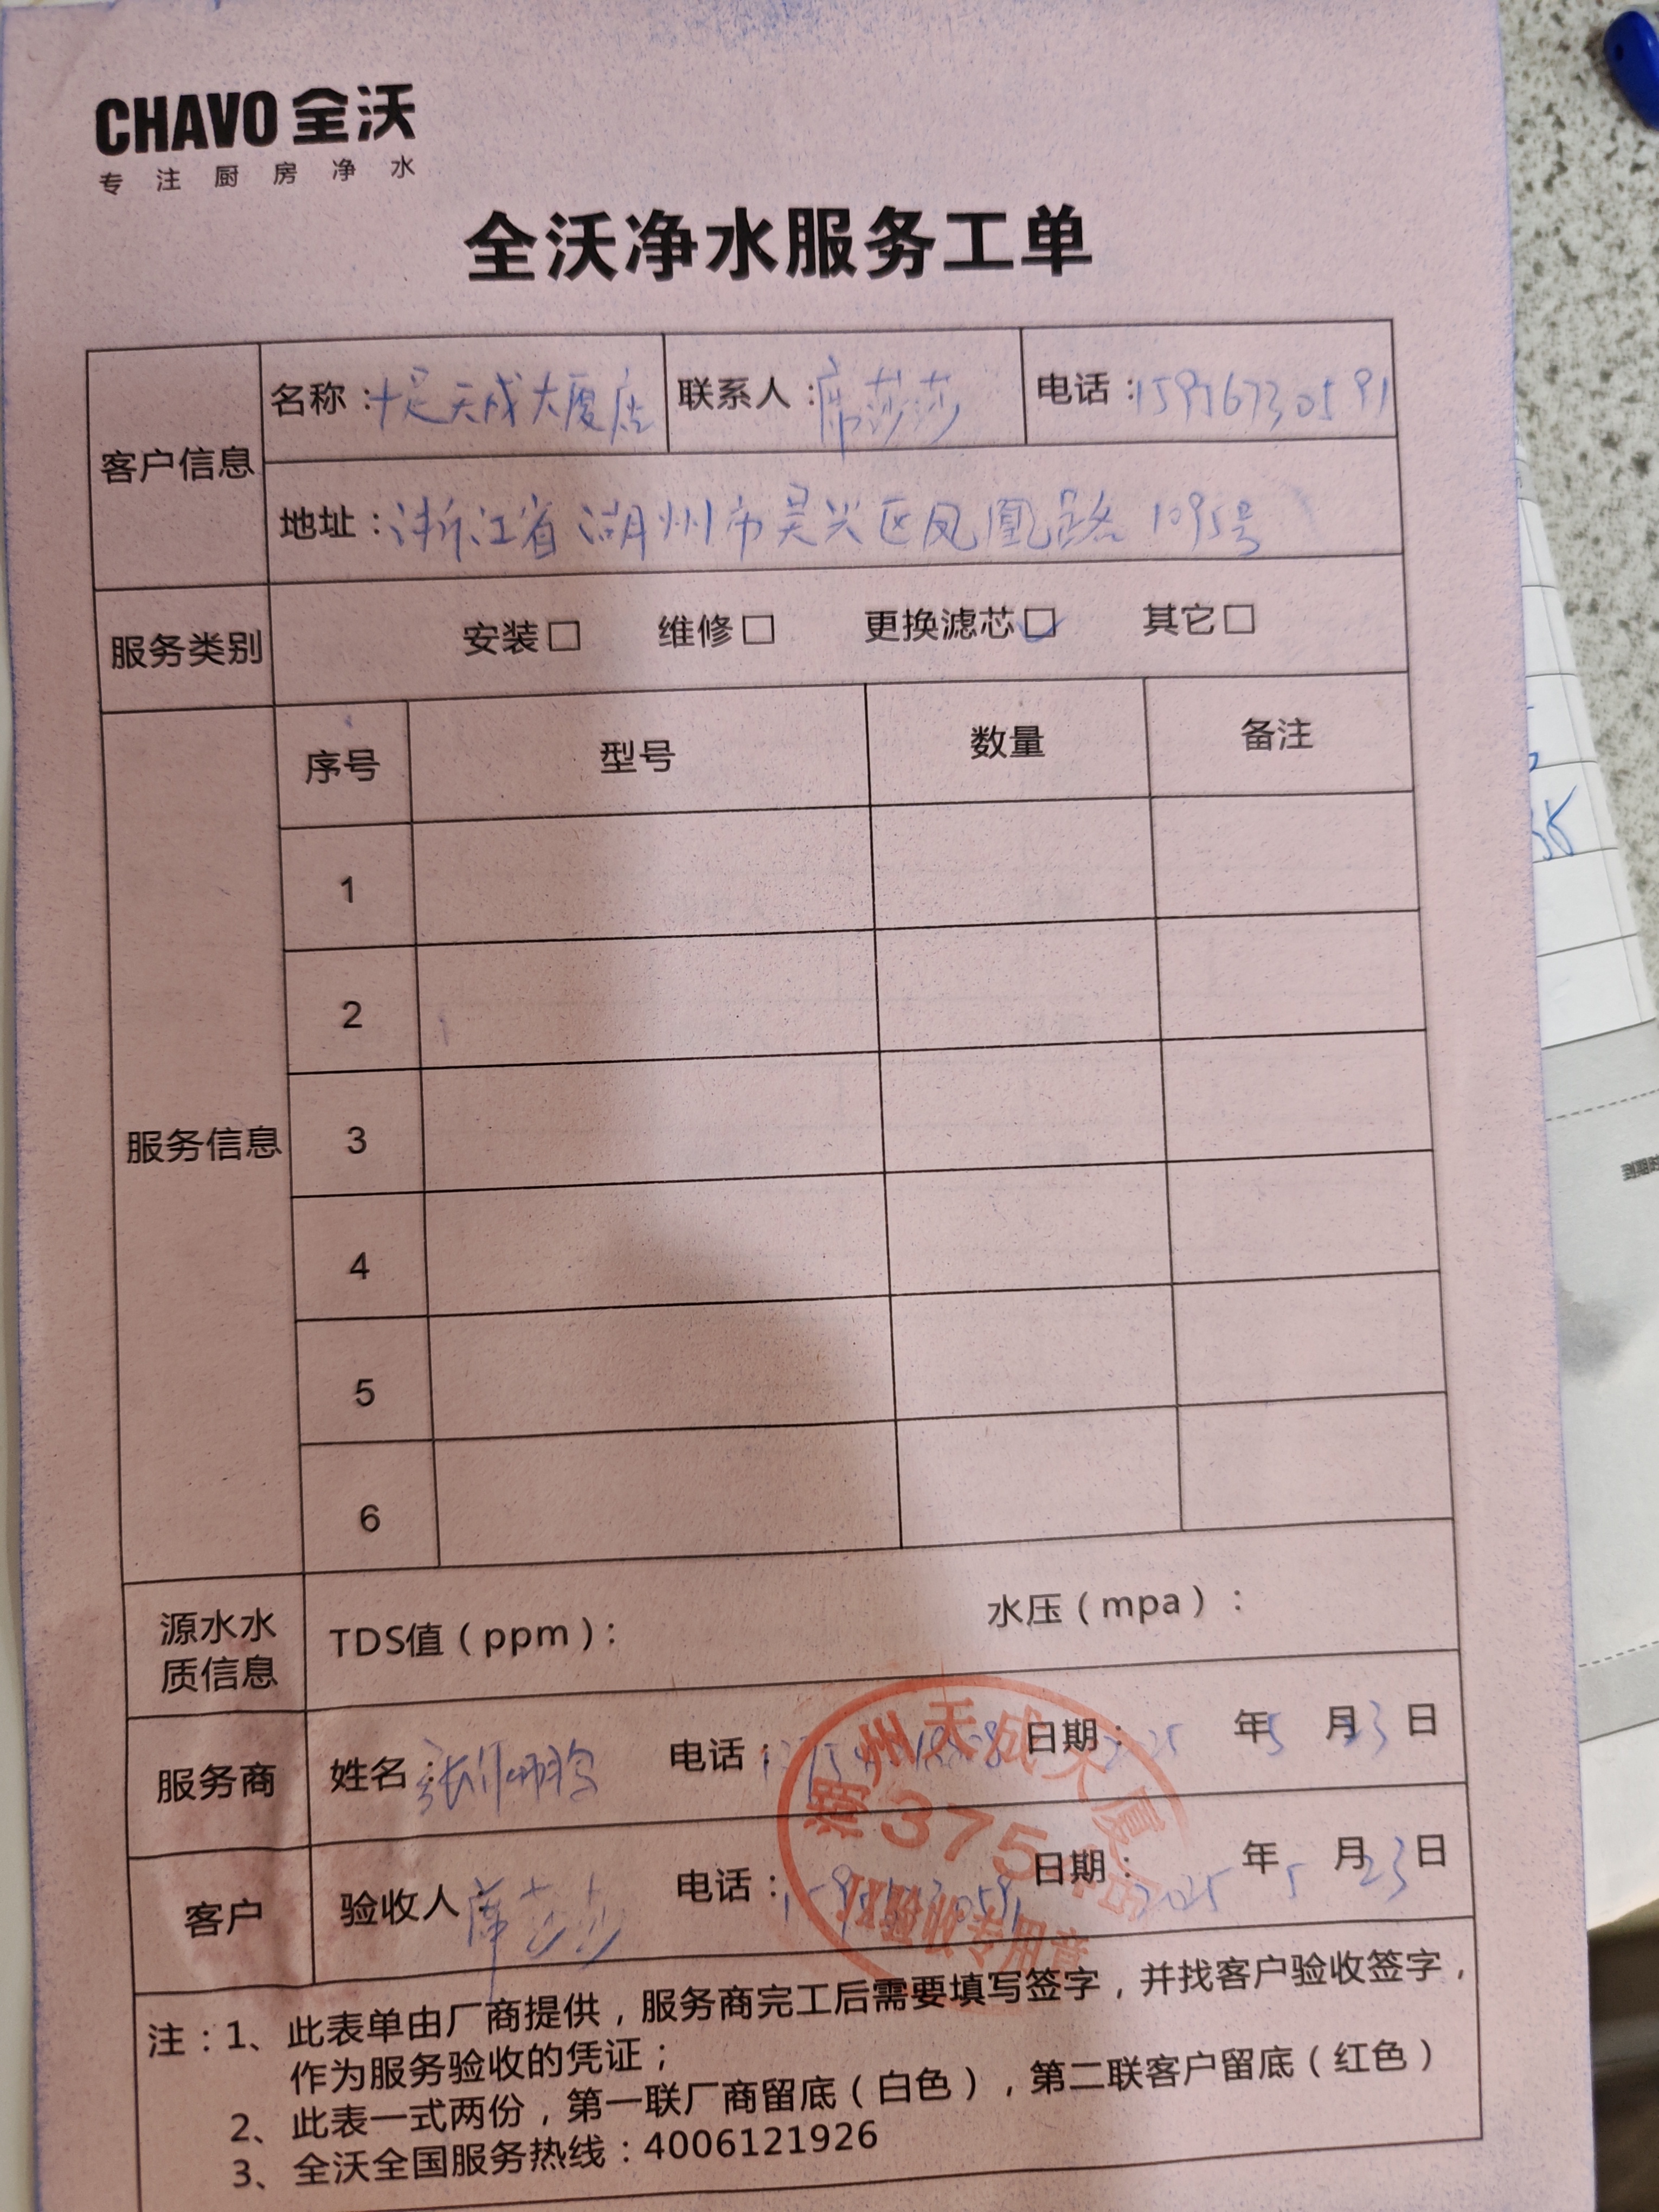 CHAVO 全沃
专注厨房净水
全沃净水服务工单
客户信息
名称：十足天成大厦店 联系人：席莎莎 电话：15956730591
地址：浙江省湖州市吴兴区凤凰路1095号
服务类别 安装□ 维修□ 更换滤芯☑ 其它□
服务信息
序号 型号 数量 备注
1
2
3
4
5
6
源水水质信息 TDS值（ppm）： 水压（mpa）：
服务商 姓名： 电话： 日期：2025年5月23日
客户 验收人：席莎莎 电话：15956730591 日期：2025年5月23日
湖州天成大厦
375
验收专用章
注：1、此表单由厂商提供，服务商完工后需要填写签字，并找客户验收签字，
作为服务验收的凭证；
2、此表一式两份，第一联厂商留底（白色），第二联客户留底（红色）
3、全沃全国服务热线：4006121926